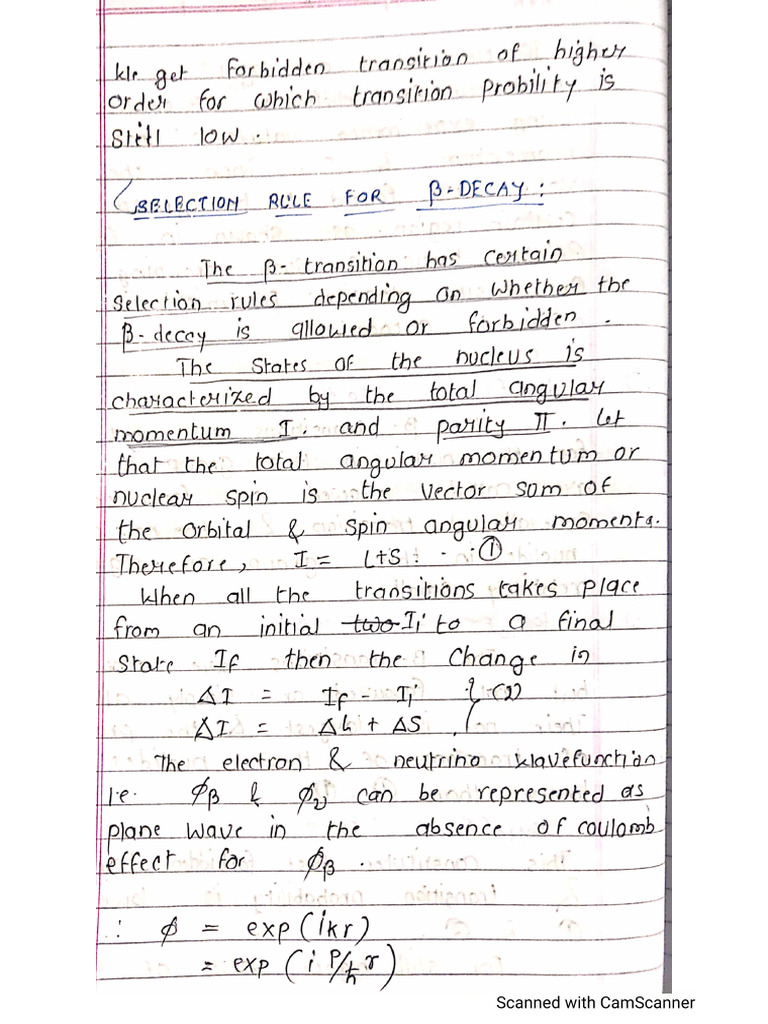 We get forbidden transition of higher
order for which transition probility is
still low.
SELECTION RULE FOR β-DECAY:
The β-transition has certain
selection rules depending on whether the
β-decay is allowed or forbidden.
The states of the nucleus is
characterized by the total angular
momentum I. and parity π. Let
that the total angular momentum or
nuclear spin is the vector sum of
the orbital & spin angular momenta.
Therefore, I = L+S: - ①
When all the transitions takes place
from an initial two Ii to a final
state If then the change in
ΔI = If - Ii } (2)
ΔI = ΔL + ΔS
The electron & neutrino wavefunction
i.e. ϕβ & ϕν can be represented as
plane wave in the absence of coulomb
effect for ϕβ.
∴ ϕ = exp(ikr)
= exp(i P/ħ r)
Scanned with CamScanner